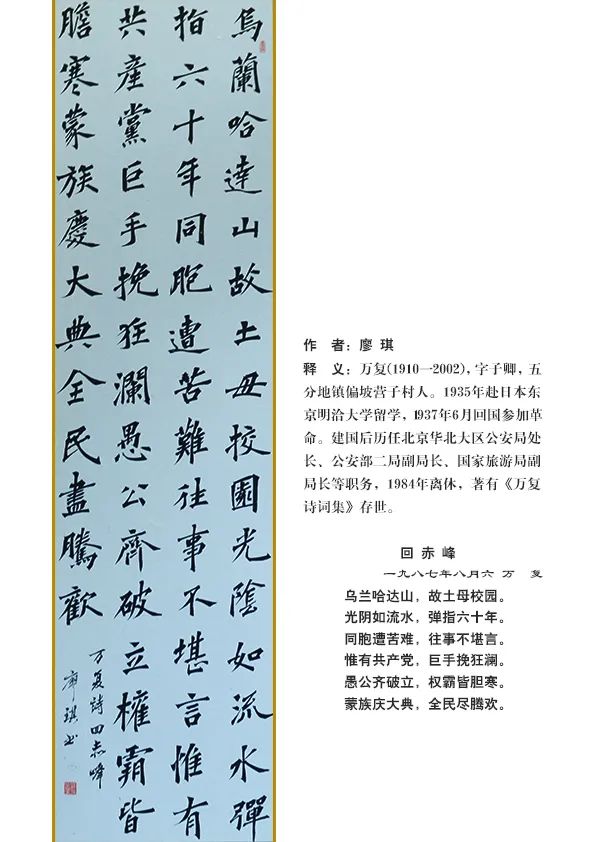 烏蘭哈達山故土母校園光陰如流水彈
指六十年同胞遭苦難往事不堪言惟有
共産黨巨手挽狂瀾愚公齊破立權霸皆
膽寒蒙族慶大典全民盡騰歡
万复詩回赤峰
廖琪书
作 者：廖 琪
释 义：万复(1910一2002)，字子卿，五
分地镇偏坡营子村人。1935年赴日本东
京明治大学留学，1937年6月回国参加革
命。建国后历任北京华北大区公安局处
长、公安部二局副局长、国家旅游局副
局长等职务，1984年离休，著有《万复
诗词集》存世。
回 赤 峰
一九八七年八月六 万 复
乌兰哈达山，故土母校园。
光阴如流水，弹指六十年。
同胞遭苦难，往事不堪言。
惟有共产党，巨手挽狂澜。
愚公齐破立，权霸皆胆寒。
蒙族庆大典，全民尽腾欢。